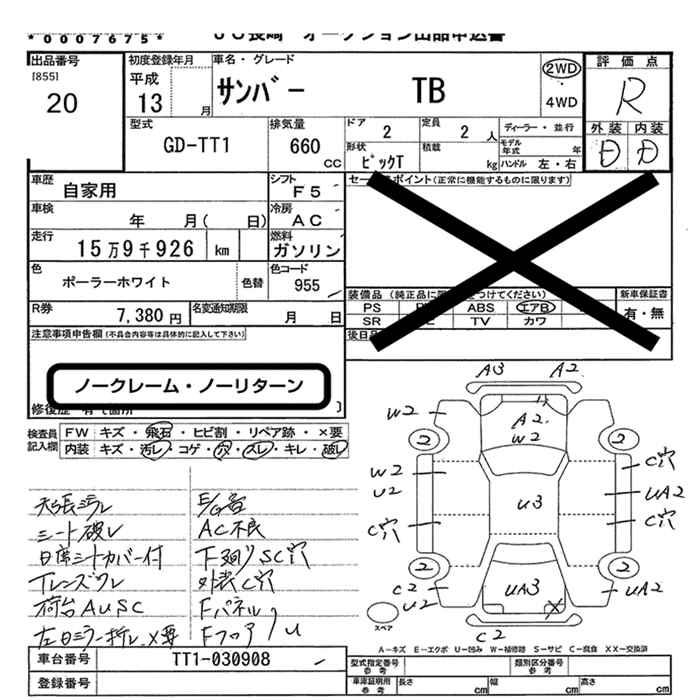 *0007675*
JU長崎 オークション出品申込書
出品番号 [855] 20
初度登録年月 平成 13 月
車名・グレード サンバー TB
2WD
4WD
評価点 R
外装 内装
D D
型式 GD-TT1
排気量 660 CC
ドア 2
定員 2 人
ディーラー・並行
モデル年式 年
形状 ピックT
積載 kg
ハンドル 左・右
車歴 自家用
シフト F5
車検 年 月( 日)
冷房 AC
走行 15万9千926 km
燃料 ガソリン
色 ポーラーホワイト 色替
色コード 955
R券 7,380円
名変通知期限 月 日
セールスポイント(正常に機能するものに限ります)
装備品(純正品に つけてください)
新車保証書 有・無
PS ABS エアB
SR TV カワ
後日品
注意事項申告欄(不具合内容等は具体的に記入して下さい)
ノークレーム・ノーリターン
修復歴 有( 箇所 )
検査員記入欄
FW キズ・飛石・ヒビ割・リペア跡・×要
内装 キズ・汚レ・コゲ・穴・スレ・キレ・破レ
シート破レ
AC不良
下廻りSC穴
Tレンズワレ
外装C穴
荷台AUSC
Fパネル
左日ミラー折レ×要
Fフロア U
A3 A2
W2 A2 W2
2 2
W2 U2 C穴
U3
C穴 UA2 C穴
2 2
C2 U2
UA3 ×
UA2
C2
スペア
A-キズ E-エクボ U-凹み W-補修跡 S-サビ C-腐食 XX-交換済
車台番号 TT1-030908
登録番号
型式指定番号 参考
類別区分番号 参考
車庫証明用 参考 長さ cm 幅 cm 高さ cm